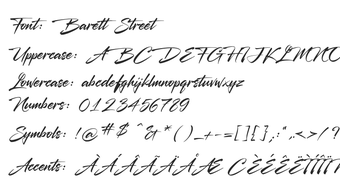 Font: Barett Street
Uppercase: A B C D E F G H I J K L M N O
Lowercase: abcdefghijklmnopqrstuvwxyz
Numbers: 0123456789
Symbols: !@#$^&*()_+-=[]{};:",.<>/?
Accents: À Á Â Ã Ä Å Æ Ç È É Ê Ë Ì Í Î Ï